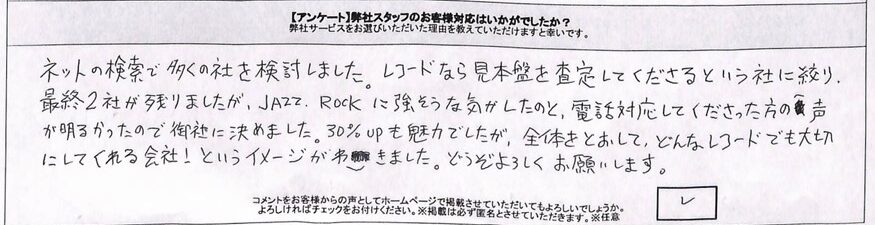 【アンケート】弊社スタッフのお客様対応はいかがでしたか?
弊社サービスをお選びいただいた理由を教えていただけますと幸いです。
ネットの検索で多くの社を検討しました。レコードなら見本盤を査定してくださるという社に絞り、
最終2社が残りましたが、JAZZ、ROCKに強そうな気がしたのと、電話対応してくださった方の声
が明るかったので御社に決めました。30%upも魅力でしたが、全体をとおして、どんなレコードでも大切
にしてくれる会社!というイメージがわきました。どうぞよろしくお願いします。
コメントをお客様からの声としてホームページで掲載させていただいてもよろしいでしょうか。
よろしければチェックをお付けください。※掲載は必ず匿名とさせていただきます。※任意